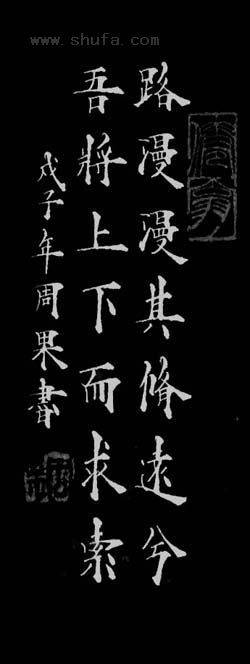 www.shufa.com
路漫漫其脩遠兮
吾將上下而求索
戊子年周果書